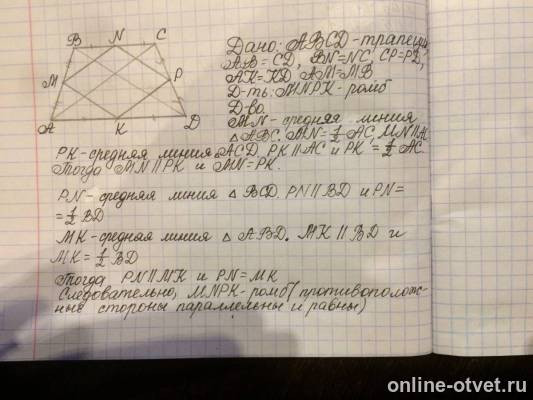 B N C
M P
A K D
Дано: ABCD-трапеция,
AB=CD, BN=NC, CP=PD,
AK=KD AM=MB
Д-ть: MNPK-ромб
Д-во.
MN-средняя линия
△ABC. MN=1/2 AC, MN||AC
PK-средняя линия ACD, PK||AC и PK=1/2 AC.
Тогда MN||PK и MN=PK.
PN-средняя линия △ BCD. PN||BD и PN=
=1/2 BD
MK-средная линия △ ABD. MK || BD и
MK=1/2 BD
Тогда PN||MK и PN=MK
Следовательно, MNPK-ромб (противополож-
ные стороны параллельны и равны)
online-otvet.ru